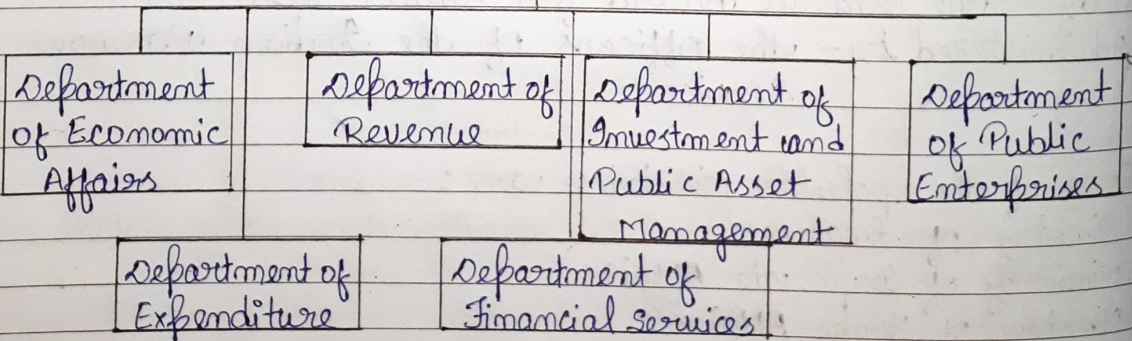 Department
of Economic
Affairs
Department of
Revenue
Department of
Investment and
Public Asset
Management
Department
of Public
Enterprises
Department of
Expenditure
Department of
Financial Services